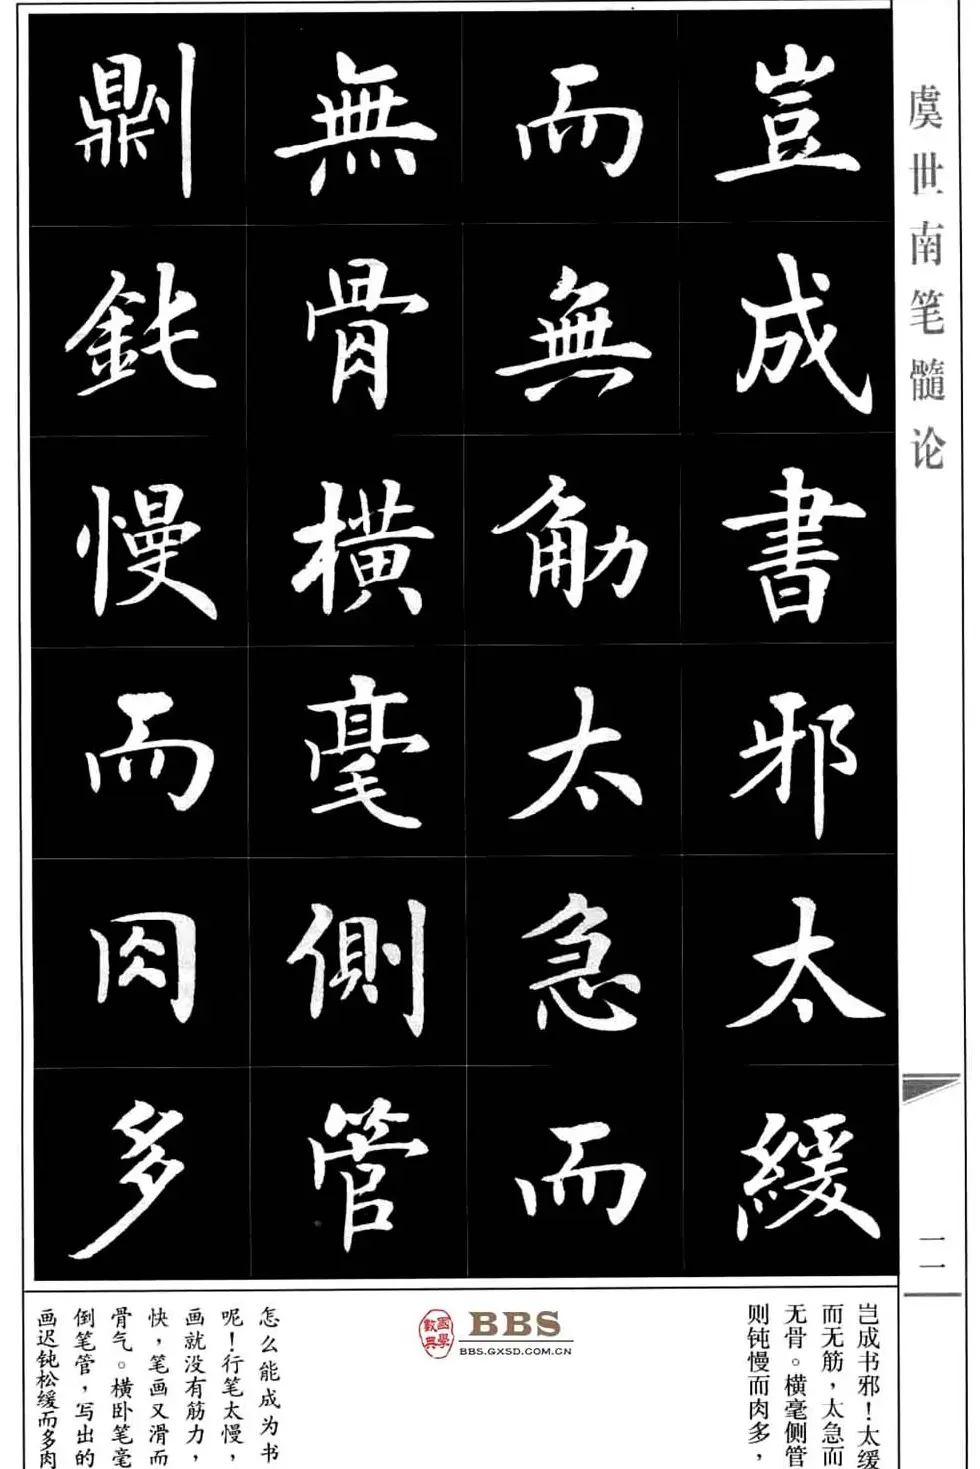 虞世南笔髓论
豈成書邪太緩
而無觔太急而
無骨橫毫側管
劓鈍慢而肉多
岂成书邪！太缓
而无筋，太急而
无骨。横毫侧管
则钝慢而肉多，
怎么能成为书
呢！行笔太慢，
画就没有筋力，
快，笔画又滑而
骨气。横卧笔毫
倒笔管，写出的
画迟钝松缓而多肉
BBS
BBS.GXSD.COM.CN
國學數典
一一